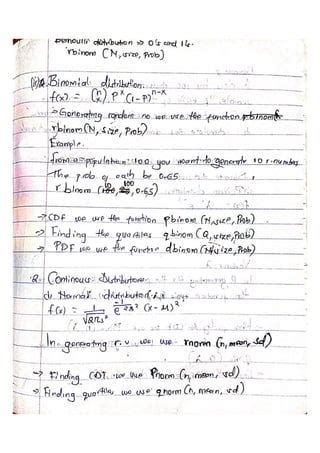 distribution => 0's and 1's.
rbinom (N, size, Prob)
Binomial distribution:
f(x) = (n x) p^x (1-p)^n-x
-> Generating random no we use the function
rbinom (N, size, Prob)
Example.
population = 100 you want to generate 10 r.number
The prob of each be 0.65
rbinom (10, 100, 0.65)
-> CDF we use the function pbinom (N, size, Prob)
-> Finding the quartiles qbinom (Q, size, Prob)
-> PDF we use the function dbinom (N, size, Prob)
2. Continuous Distribution
Normal distribution
f(x) = 1/√2πs² e^-1/2s² (x-μ)²
In generating r.v we use rnorm (n, mean, sd)
-> Finding CDF we use Pnorm (n, mean, sd)
-> Finding quartiles we use qnorm (n, mean, sd)